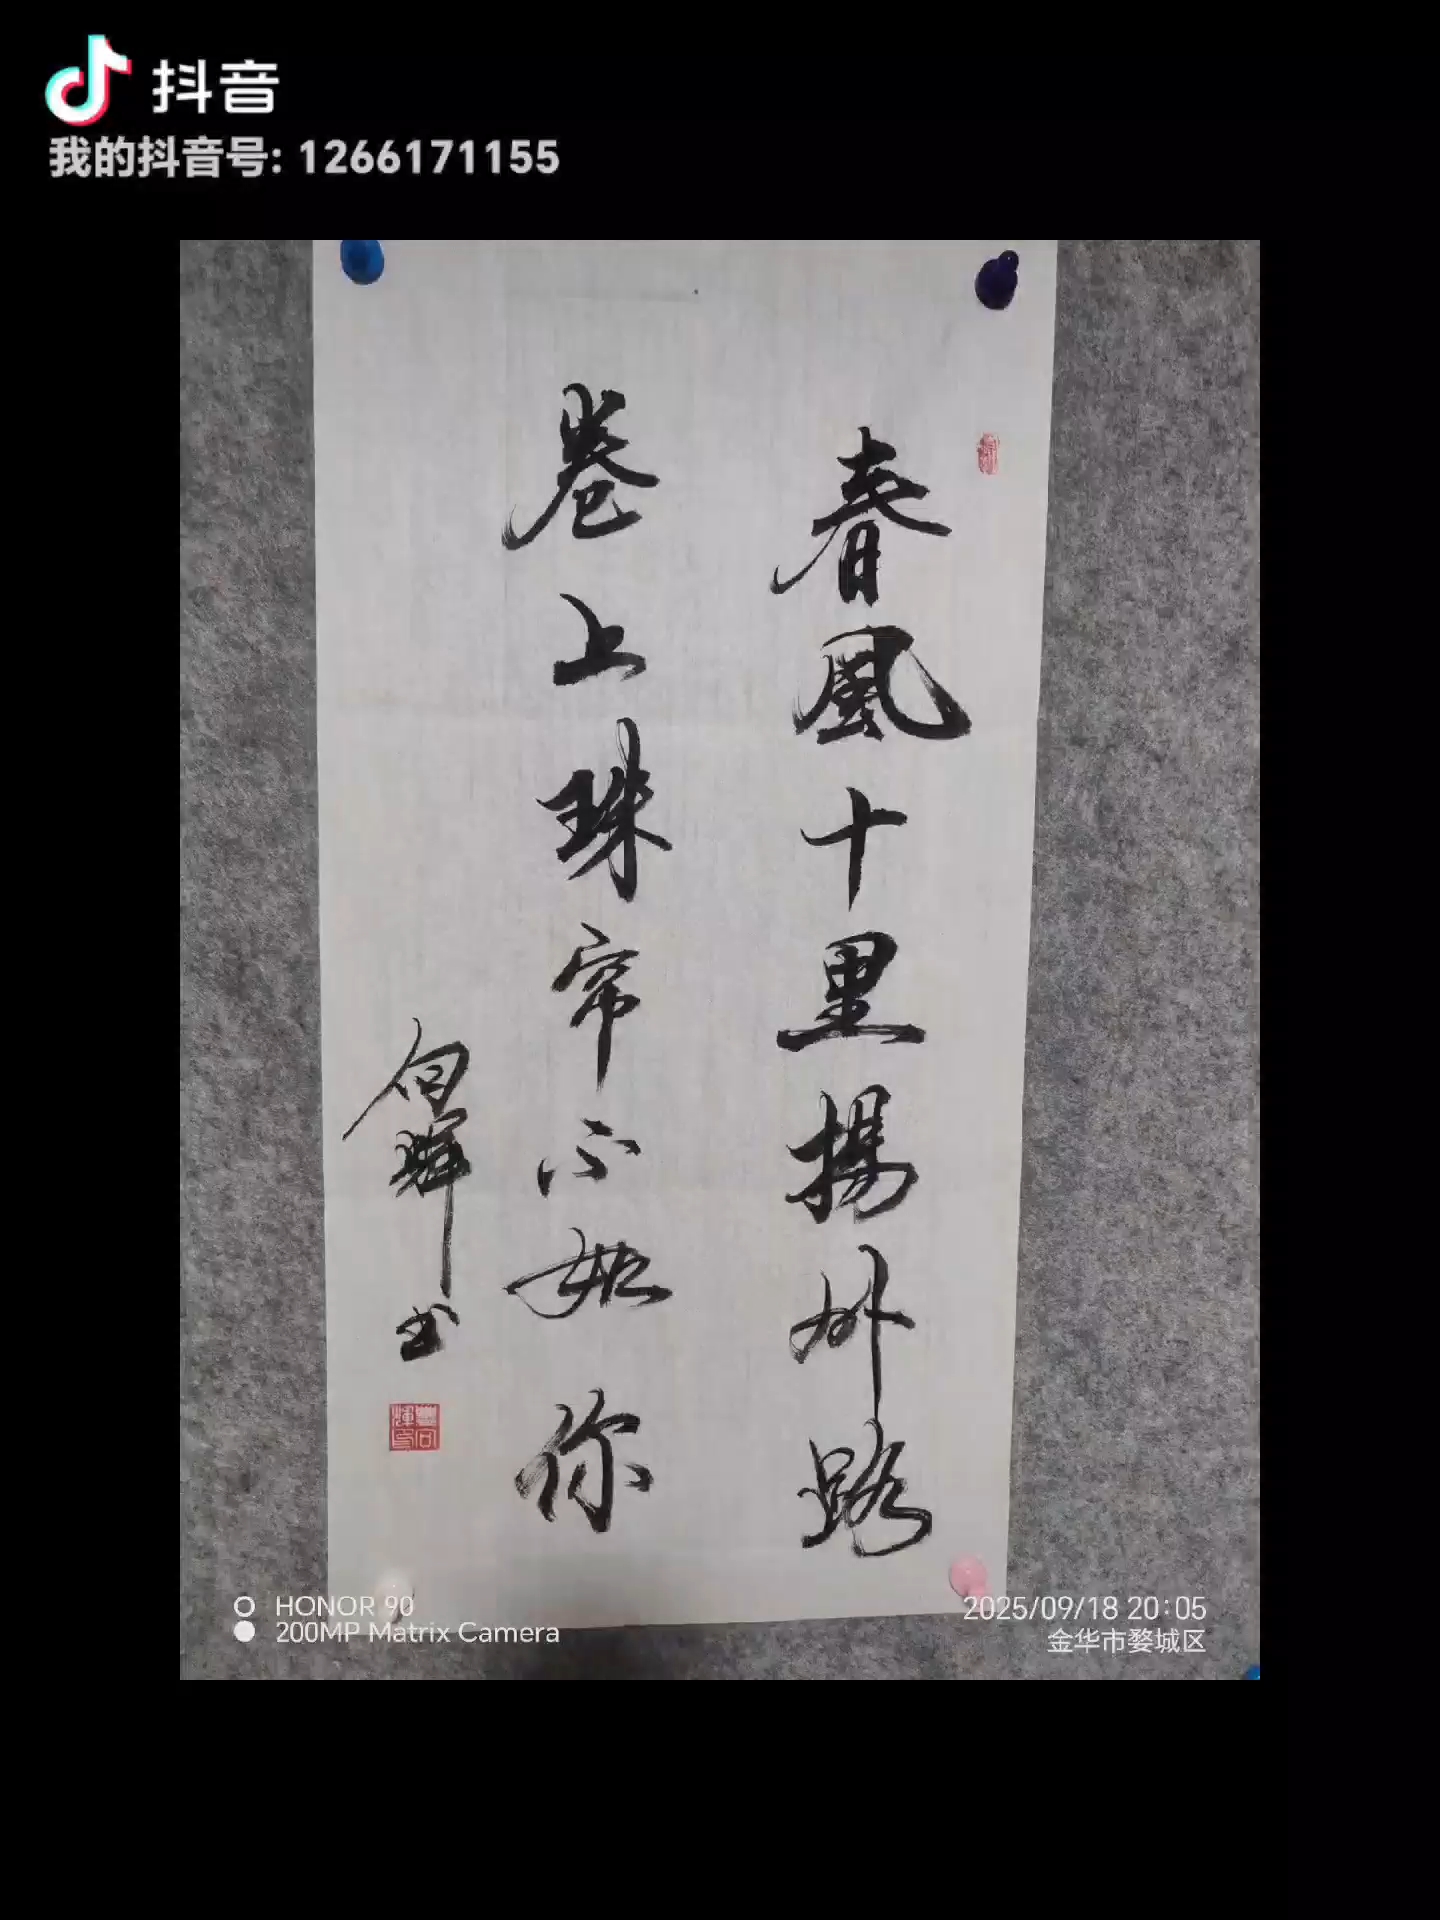 抖音
我的抖音号: 1266171155
春風十里揚州路
卷上珠帘不如你
向輝书
HONOR 90
200MP Matrix Camera
2025/09/18 20:05
金华市婺城区